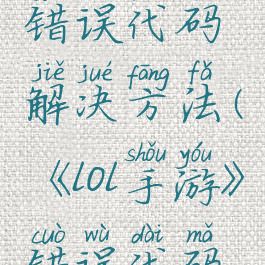 错误代码
jiě jué fāng fǎ
解决方法(
shǒu yóu
《lol手游》
cuò wù dài mǎ
错误代码